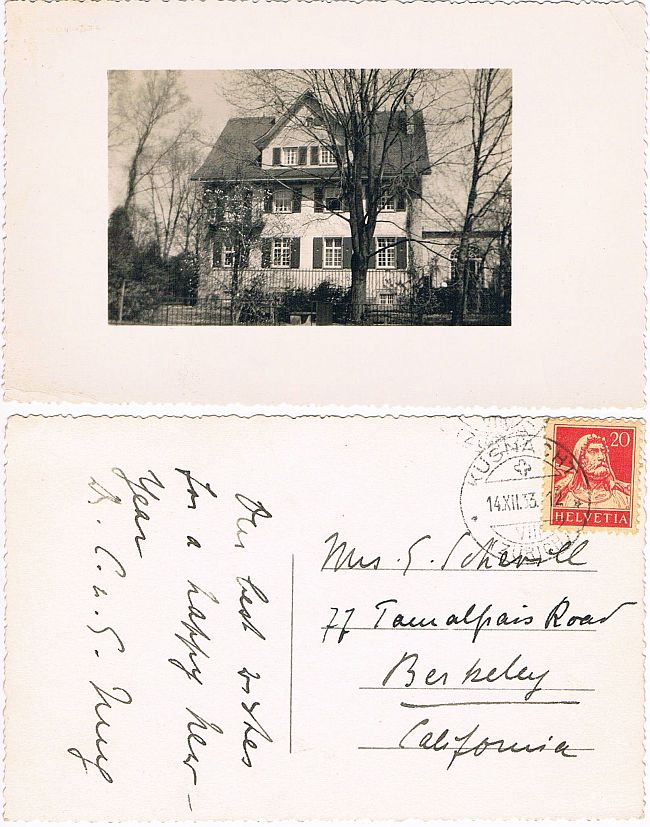 KÜSNACHT
14.XII.33. 12
VIII
(ZÜRICH)
20
HELVETIA
Our best wishes
for a happy New-
Year
Dr. C. u. E. Jung
Mrs. E. Schevill
77 Tamalpais Road
Berkeley
California